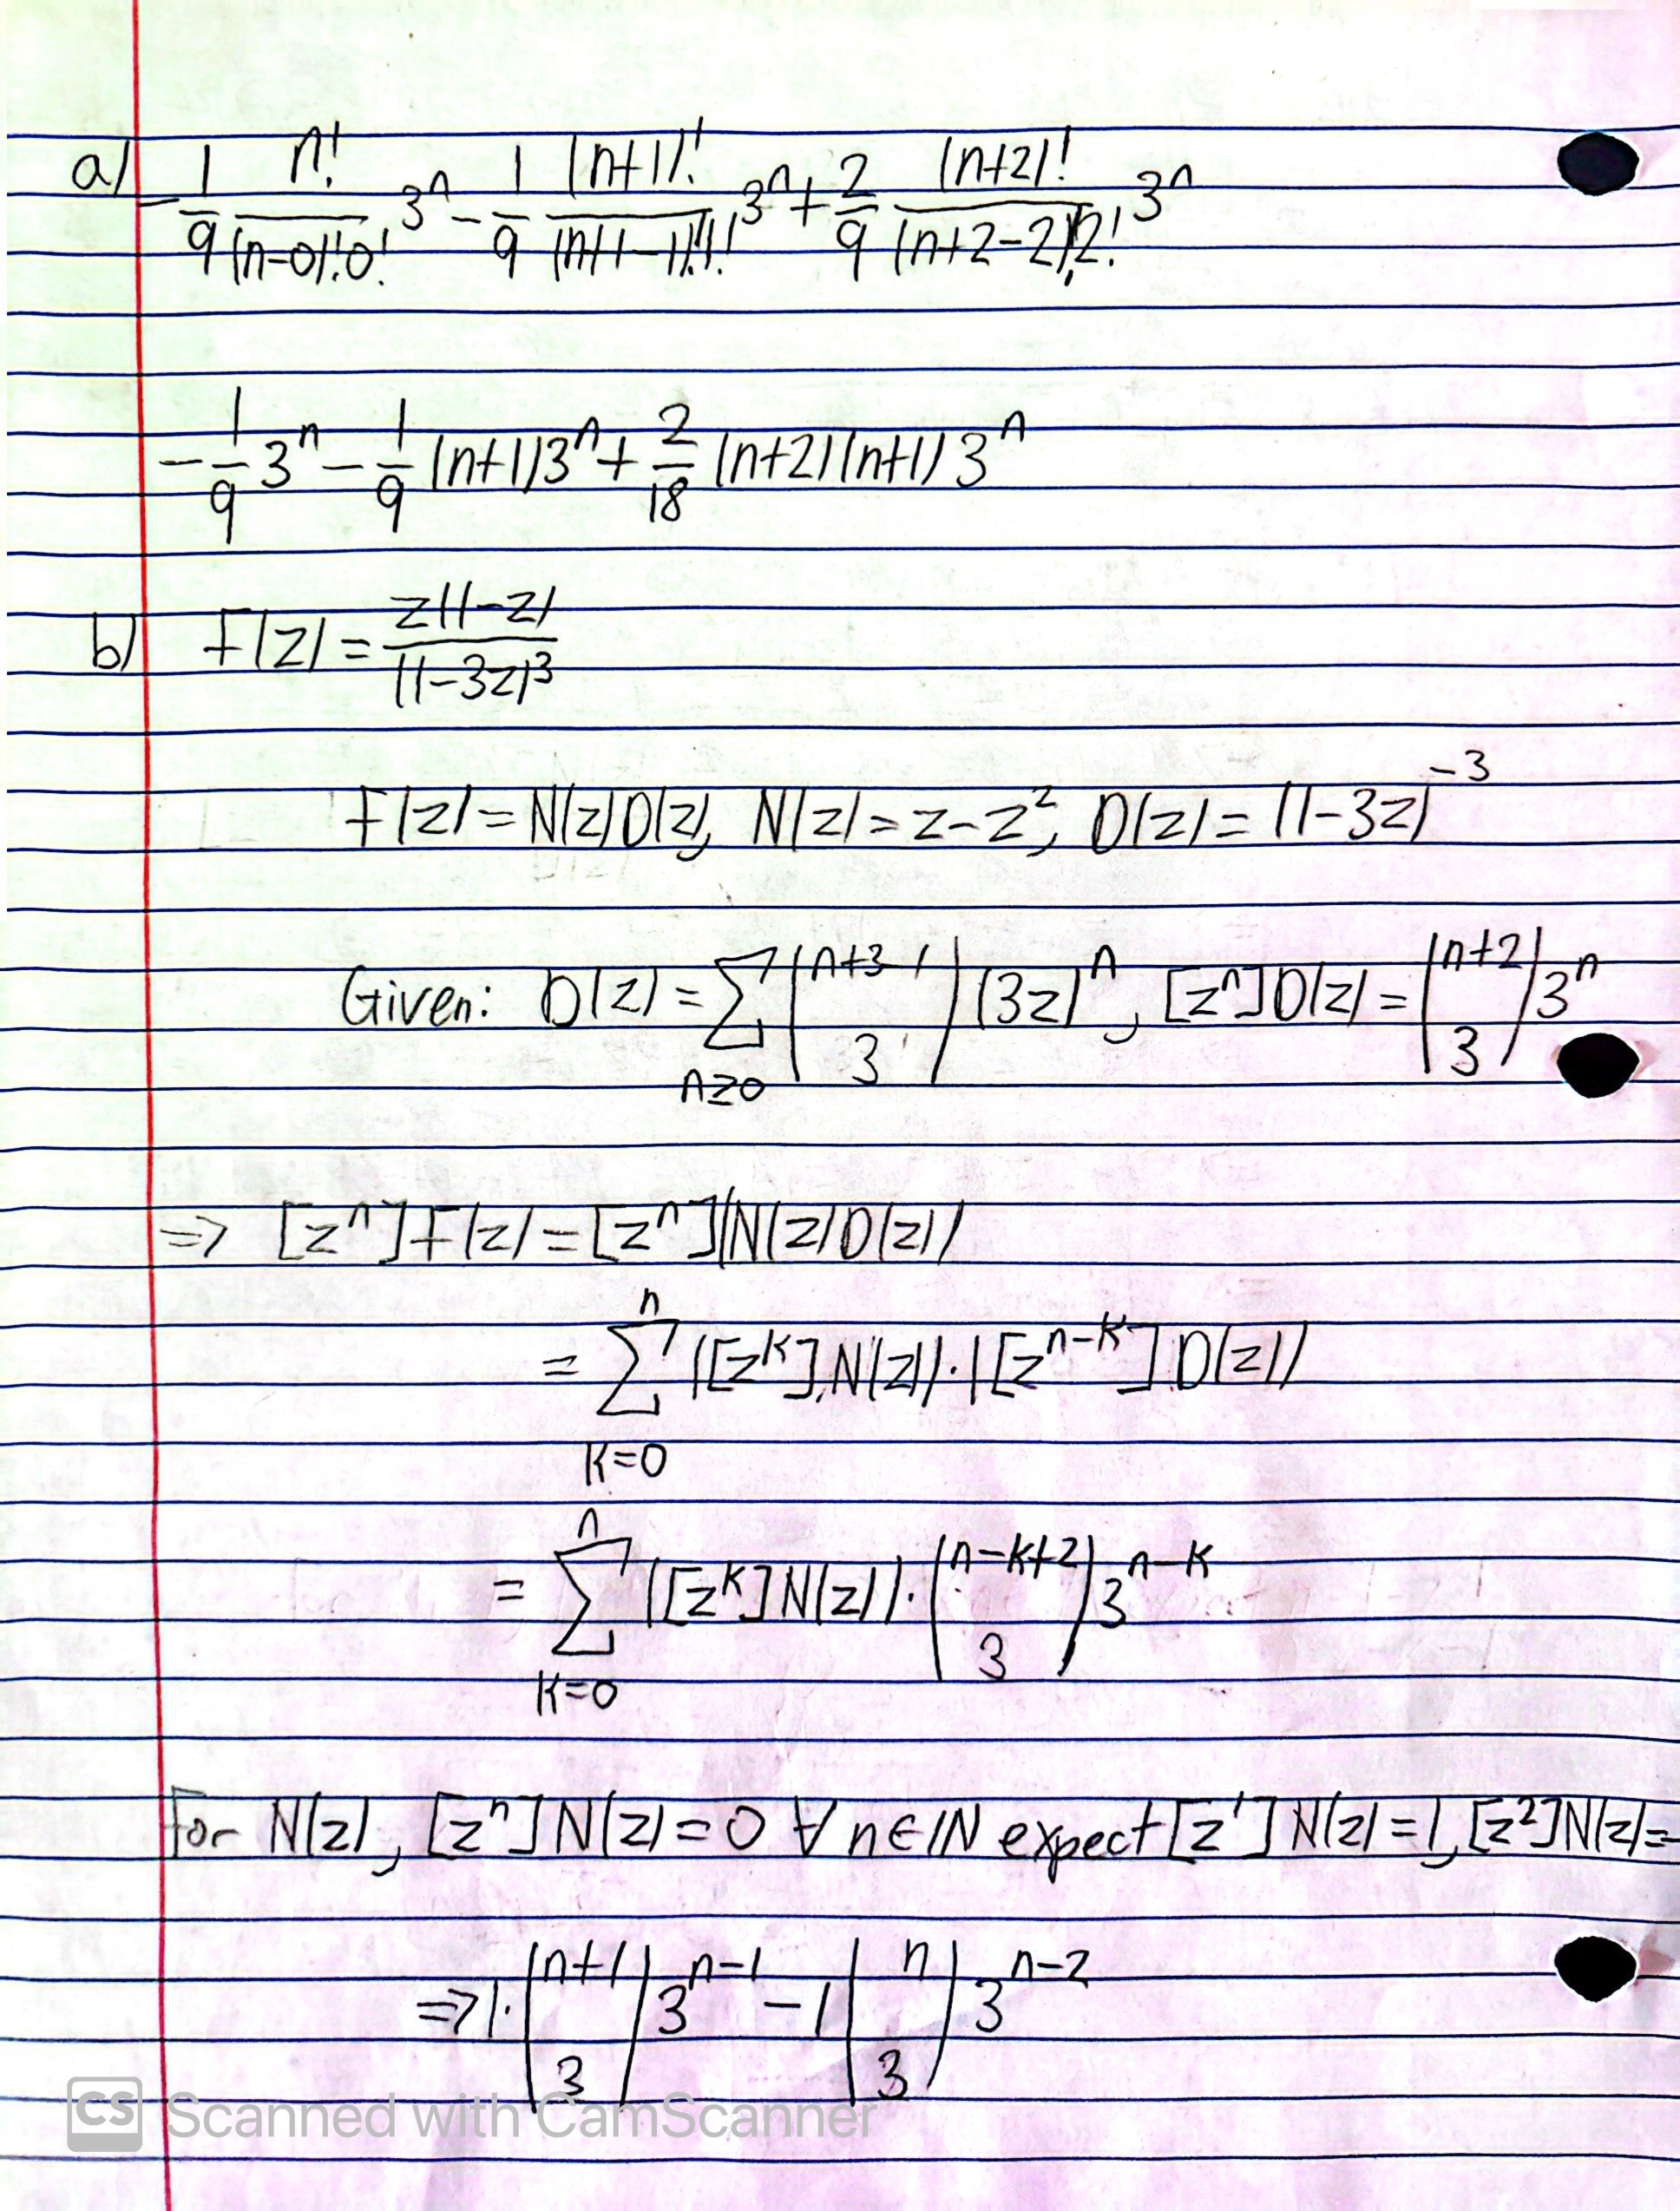 a) -1/9 n!/((n-0)!0!) 3^n - 1/9 (n+1)!/((n+1-1)!1!) 3^n + 2/9 (n+2)!/((n+2-2)!2!) 3^n
-1/9 3^n - 1/9 (n+1)3^n + 2/18 (n+2)(n+1)3^n
b) F(z) = z(1-z)/(1-3z)^3
F(z) = N(z)D(z), N(z) = z-z^2, D(z) = (1-3z)^-3
Given: D(z) = ∑_{n≥0} (n+3-1 / 3) (3z)^n, [z^n]D(z) = (n+2 / 3) 3^n
=> [z^n]F(z) = [z^n](N(z)D(z))
= ∑_{k=0}^{n} ([z^k]N(z))·([z^{n-k}]D(z))
= ∑_{k=0}^{n} ([z^k]N(z))·(n-k+2 / 3) 3^{n-k}
For N(z), [z^n]N(z) = 0 ∀ n∈ℕ expect [z^1]N(z) = 1, [z^2]N(z) =
=> 1·(n+1 / 3) 3^{n-1} - 1(n / 3) 3^{n-2}
CS Scanned with CamScanner